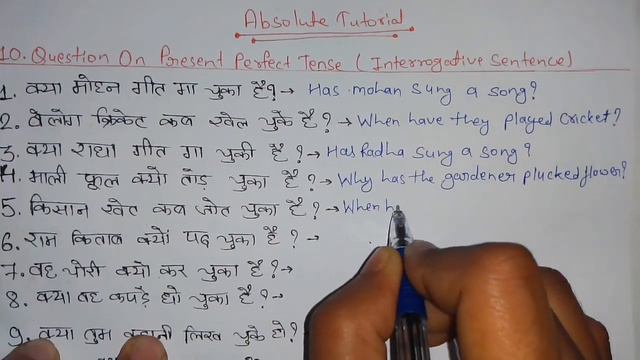 Absolute Tutorial
10. Question On Present Perfect Tense ( Interrogative Sentence)
1. क्या मोहन गीत गा चुका है?→ Has mohan sung a song?
2. वेलोग क्रिकेट कब खेल चुके हैं?→ When have they played Cricket?
3. क्या राधा गीत गा चुकी है?→ Has Radha sung a song?
4. माली फूल क्यो तोड़ चुका है?→ Why has the gardener plucked flower?
5. किसान खेत कब जोत चुका है?→ When h
6. राम किताब क्यों पढ़ चुका है?→
7. वह चोरी क्यो कर चुका है?→
8. क्या वह कपड़े धो चुका है?→
9. क्या तुम कहानी लिख चुके हो?